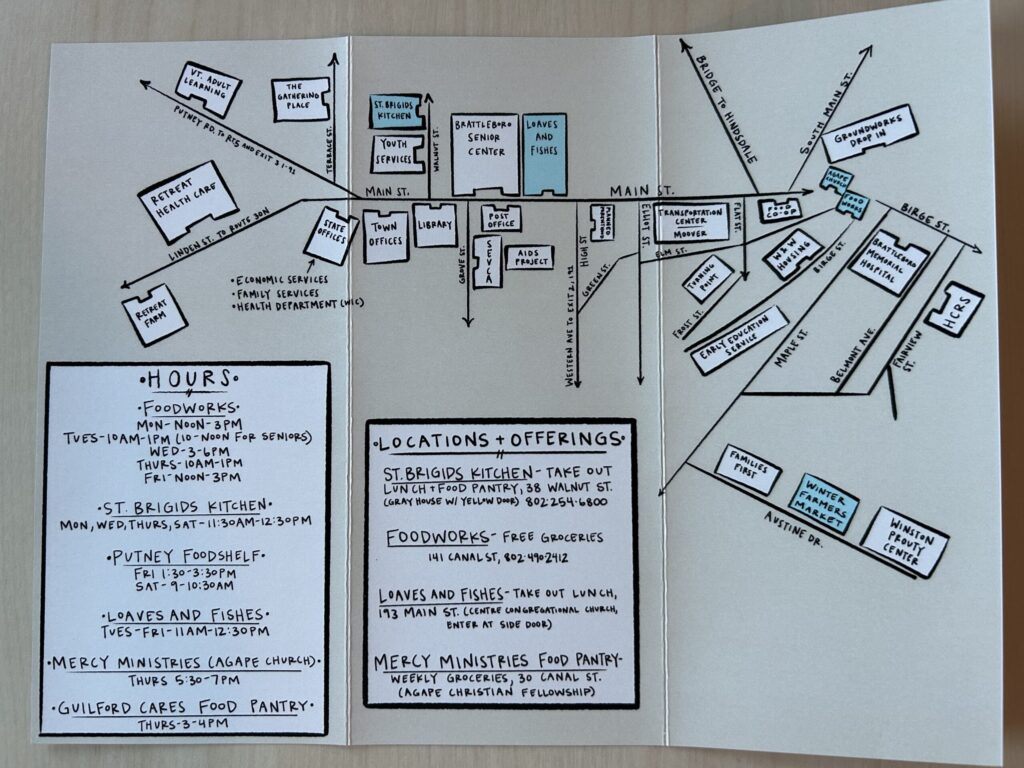 VT. ADULT
LEARNING
THE
GATHERING
PLACE
TERRACE ST.
PUTNEY RD. TO RT5 AND EXIT 3 I-91
RETREAT
HEALTH CARE
LINDEN ST. TO ROUTE 30N
RETREAT
FARM
STATE
OFFICES
• ECONOMIC SERVICES
• FAMILY SERVICES
• HEALTH DEPARTMENT (WIC)
ST. BRIGIDS
KITCHEN
YOUTH
SERVICES
WALNUT ST.
BRATTLEBORO
SENIOR
CENTER
LOAVES
AND
FISHES
MAIN ST.
MAIN ST.
TOWN
OFFICES
LIBRARY
GROVE ST.
POST
OFFICE
SEVCA
AIDS
PROJECT
WESTERN AVE TO EXIT 2, I-91
HIGH ST
GREEN ST.
ELLIOT ST.
ELM ST.
TRANSPORTATION
CENTER
MOOVER
FLAT ST.
FOOD
CO-OP
BRIDGE TO HINSDALE
SOUTH MAIN ST.
GROUNDWORKS
DROP IN
AGAPE
CHURCH
FOOD
WORKS
BIRGE ST.
BIRGE ST.
TURNING
POINT
W&W
HOUSING
FROST ST.
EARLY EDUCATION
SERVICE
BRATTLEBORO
MEMORIAL
HOSPITAL
HCRS
MAPLE ST.
BELMONT AVE.
FAIRVIEW
ST.
FAMILIES
FIRST
WINTER
FARMERS
MARKET
WINSTON
PROUTY
CENTER
AUSTINE DR.
• HOURS •
• FOODWORKS •
MON- NOON-3PM
TUES-10AM-1PM (10-NOON FOR SENIORS)
WED-3-6PM
THURS-10AM-1PM
FRI-NOON-3PM
• ST. BRIGIDS KITCHEN •
MON, WED, THURS, SAT-11:30AM-12:30PM
• PUTNEY FOODSHELF •
FRI 1:30-3:30PM
SAT-9-10:30AM
• LOAVES AND FISHES •
TUES-FRI-11AM-12:30PM
• MERCY MINISTRIES (AGAPE CHURCH) •
THURS 5:30-7PM
• GUILFORD CARES FOOD PANTRY •
THURS-3-4PM
• LOCATIONS + OFFERINGS •
ST. BRIGIDS KITCHEN- TAKE OUT
LUNCH + FOOD PANTRY, 38 WALNUT ST.
(GRAY HOUSE W/ YELLOW DOOR) 802-254-6800
FOODWORKS- FREE GROCERIES
141 CANAL ST, 802-490-2412
LOAVES AND FISHES- TAKE OUT LUNCH,
193 MAIN ST. (CENTRE CONGREGATIONAL CHURCH,
ENTER AT SIDE DOOR)
MERCY MINISTRIES FOOD PANTRY-
WEEKLY GROCERIES, 30 CANAL ST.
(AGAPE CHRISTIAN FELLOWSHIP)